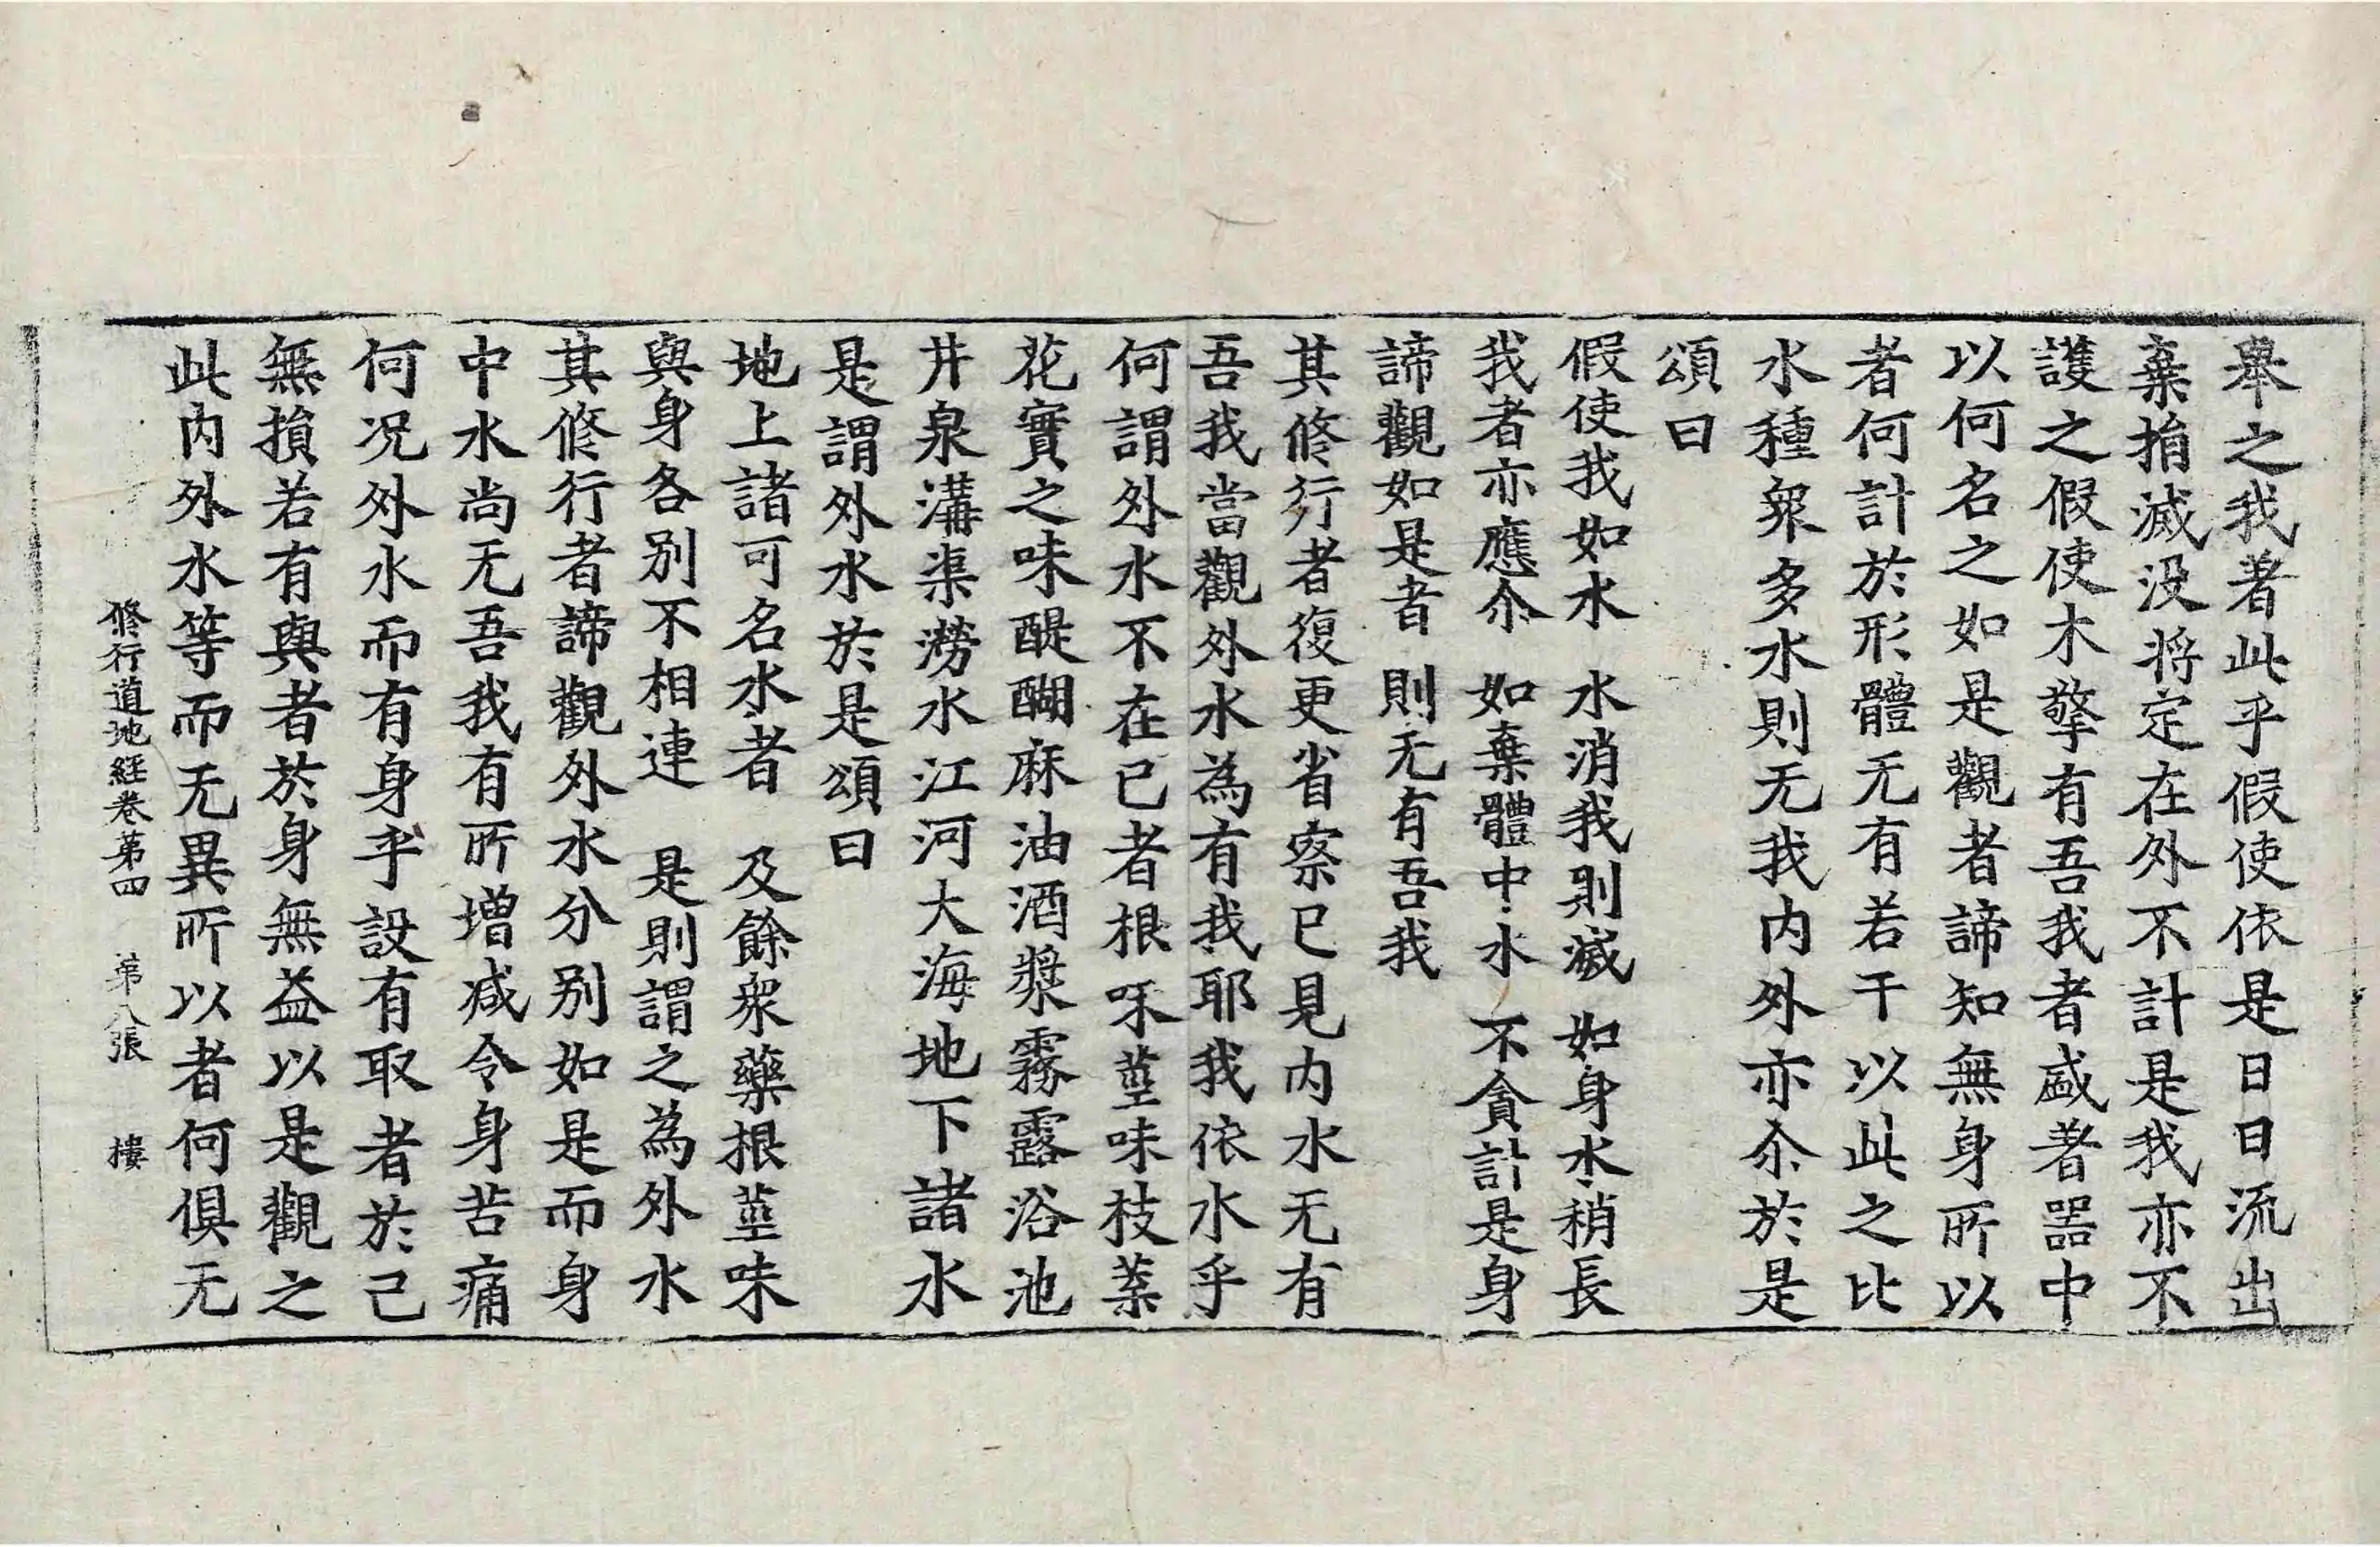 舉之我著此乎假使依是日日流出
棄捐滅没將定在外不計是我亦不
護之假使木擎有吾我者盛著器中
以何名之如是觀者諦知無身所以
者何計於形體无有若干以此之比
水種衆多水則无我内外亦尒於是
頌曰
假使我如水 水消我則滅 如身水稍長
我者亦應尒 如棄體中水 不貪計是身
諦觀如是者 則无有吾我
其修行者復更省察已見内水无有
吾我當觀外水為有我耶我依水乎
何謂外水不在已者根味莖味枝葉
花實之味醍醐麻油酒漿霧露浴池
井泉溝渠澇水江河大海地下諸水
是謂外水於是頌曰
地上諸可名水者 及餘衆藥根莖味
與身各别不相連 是則謂之為外水
其修行者諦觀外水分别如是而身
中水尚无吾我有所增减令身苦痛
何况外水而有身乎設有取者於己
無損若有與者於身無益以是觀之
此内外水等而无異所以者何俱无
修行道地經卷第四 第八張 樓